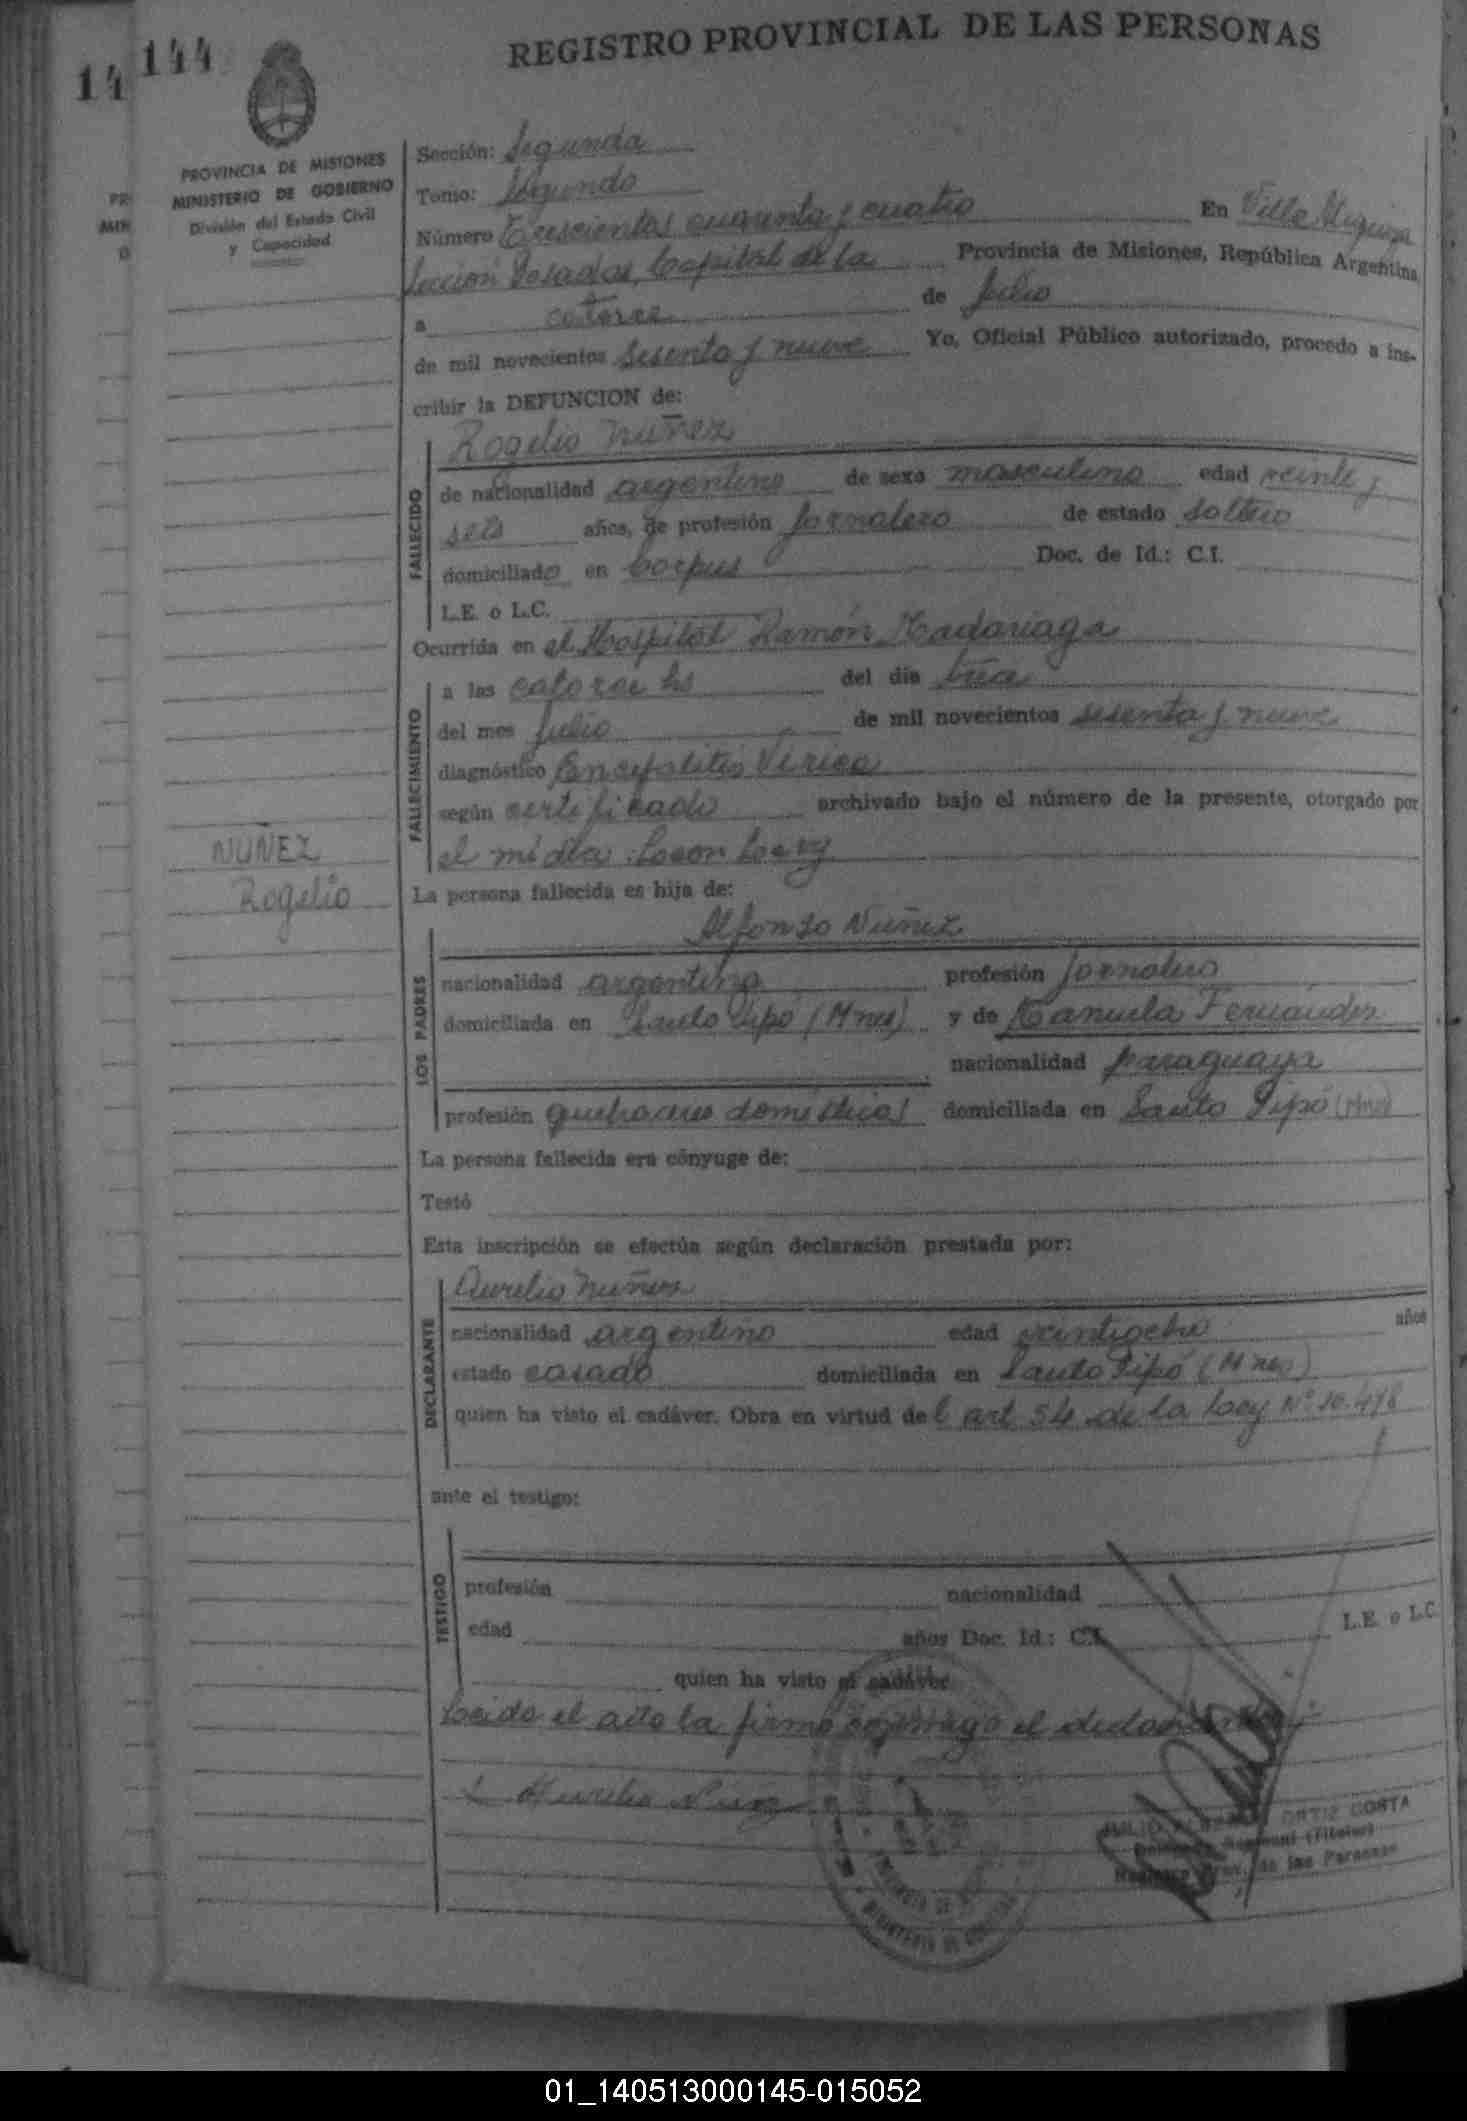 REGISTRO PROVINCIAL DE LAS PERSONAS
14
144
PROVINCIA DE MISIONES
MINISTERIO DE GOBIERNO
División del Estado Civil
y Capacidad
Sección: Segunda
Tomo: Segundo
Número Trescientos cuarenta y cuatro En Villa Urquiza
Sección Posadas, Capital de la Provincia de Misiones, República Argentina
a catorce de Julio
de mil novecientos sesenta y nueve Yo, Oficial Público autorizado, procedo a ins-
cribir la DEFUNCION de:
Rogelio Nuñez
FALLECIDO
de nacionalidad argentino de sexo masculino edad veinte y
seis años, de profesión Jornalero de estado soltero
domiciliado en Corpus Doc. de Id.: C.I.
L.E. o L.C.
Ocurrida en el Hospital Ramón Madariaga
FALLECIMIENTO
a las catorce hs del día trece
del mes Julio de mil novecientos sesenta y nueve
diagnóstico Encefalitis Virica
según certificado archivado bajo el número de la presente, otorgado por
el
NUÑEZ
Rogelio
La persona fallecida es hija de:
Alfonso Nuñez
LOS PADRES
nacionalidad argentino profesión Jornalero
domiciliada en Santo Pipó (Mnes) y de Manuela Fernández
nacionalidad paraguaya
profesión quehaceres domésticos domiciliada en Santo Pipó (Mnes)
La persona fallecida era cónyuge de:
Testó
Esta inscripción se efectúa según declaración prestada por:
Aurelio Nuñez
DECLARANTE
nacionalidad argentino edad veintiocho años
estado casado domiciliada en Santo Pipó (Mnes)
quien ha visto el cadáver. Obra en virtud del art 54 de la Ley Nº
ante el testigo:
TESTIGO
profesión nacionalidad
edad años Doc. Id.: C.I. L.E. o L.C.
quien ha visto el cadáver.
Leida el acta la firma conmigo el declarante
Aurelio Nuñez
JULIO ORTIZ COSTA
(Titular)
Registro Prov. de las Personas
MINISTERIO DE GOBIERNO
01_140513000145-015052